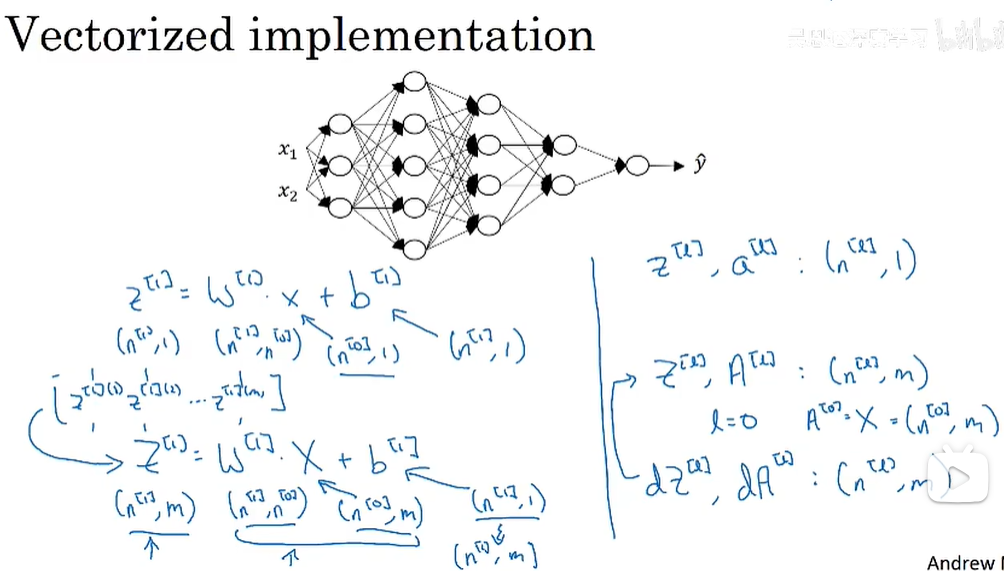 Vectorized implementation
x₁
x₂
ŷ
z^[1] = W^[1] · x + b^[1]
(n^[1], 1) (n^[1], n^[0]) (n^[0], 1) (n^[1], 1)
[z^[1](1) z^[1](2) ... z^[1](m)]
Z^[1] = W^[1] · X + b^[1]
(n^[1], m) (n^[1], n^[0]) (n^[0], m) (n^[1], 1)
(n^[1], m]
z^[l], a^[l] : (n^[l], 1)
Z^[l], A^[l] : (n^[l], m)
l=0 A^[0] = X = (n^[0], m)
dZ^[l], dA^[l] : (n^[l], m)
Andrew